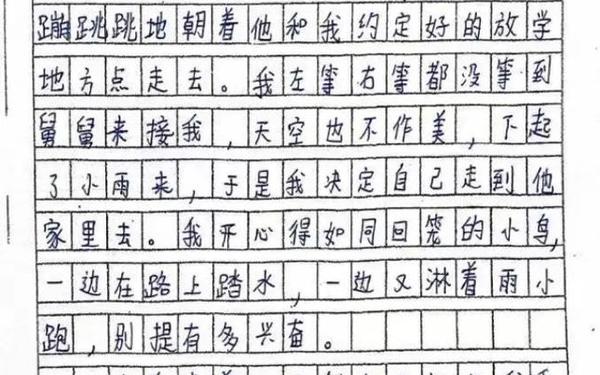 蹦跳跳地朝着他和我约定好的放学
地方点走去。我左等右等都没等到
舅舅来接我，天空也不作美，下起
了小雨来，于是我决定自己走到他
家里去。我开心得如同回笼的小鸟，
一边在路上踏水，一边又淋着雨小
跑，别提有多兴奋。